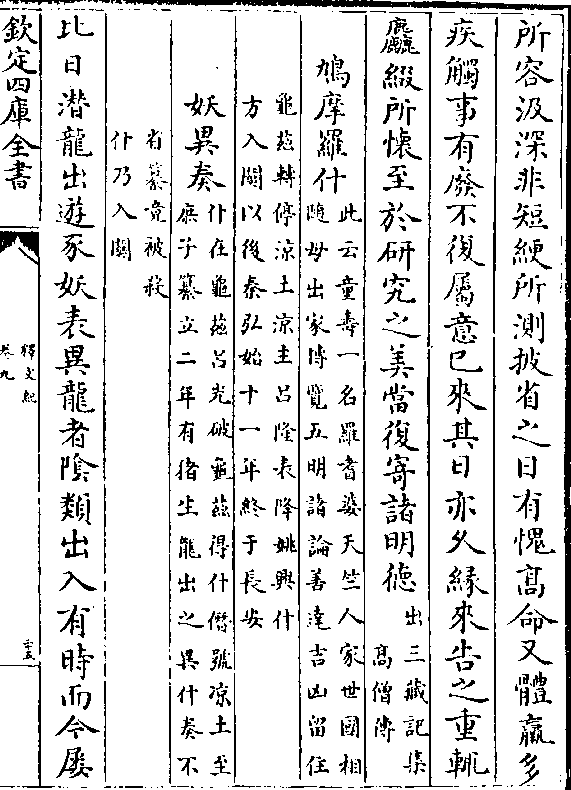 所容汲深非短綆所測披省之日有愧髙命又體羸多
疾觸事有廢不復屬意已來其日亦久緣來告之重輒
麤綴所懷至於研究之美當復寄諸明德
出三藏記集
髙僧傳
鳩摩羅什
此云童壽一名羅耆婆天竺人家世國相
隨母出家博覽五明諸論善達吉凶留住
龜茲轉停涼土涼主吕隆表降姚興什
方入關以後秦弘始十一年終于長安
妖異奏
什在龜茲吕光破龜茲得什僭號凉土至
庶子纂立二年有猪生龍出之異什奏不
省纂竟被殺
什乃入關
比日潜龍出遊豕妖表異龍者隂類出入有時而今屢
欽定四庫全書
釋文紀
卷九